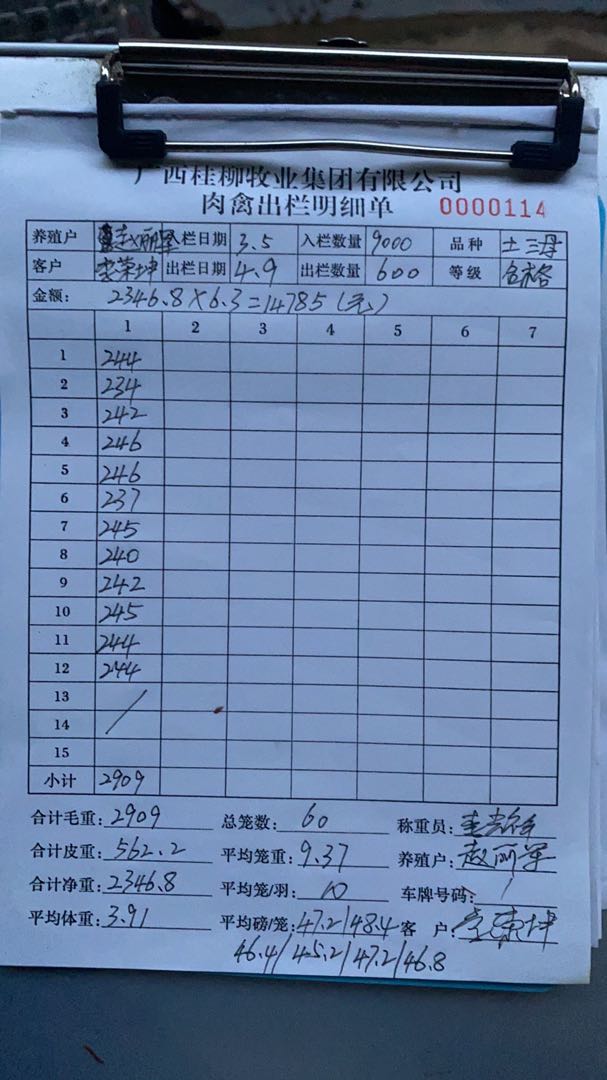 广西桂柳牧业集团有限公司
肉禽出栏明细单 0000114
养殖户 赵丽军 入栏日期 3.5 入栏数量 9000 品种 土三号
客户 荣坤 出栏日期 4.9 出栏数量 600 等级 合格
金额: 2346.8×6.3=14785(元)
1 2 3 4 5 6 7
1 244
2 234
3 242
4 246
5 246
6 237
7 245
8 240
9 242
10 245
11 244
12 244
13
14 /
15
小计 2909
合计毛重: 2909 总笼数: 60 称重员:
合计皮重: 562.2 平均笼重: 9.37 养殖户: 赵丽军
合计净重: 2346.8 平均笼/羽: 10 车牌号码: /
平均体重: 3.91 平均磅/笼: 47.2/48.4 客 户: 荣坤
46.4/45.2/47.2/46.8